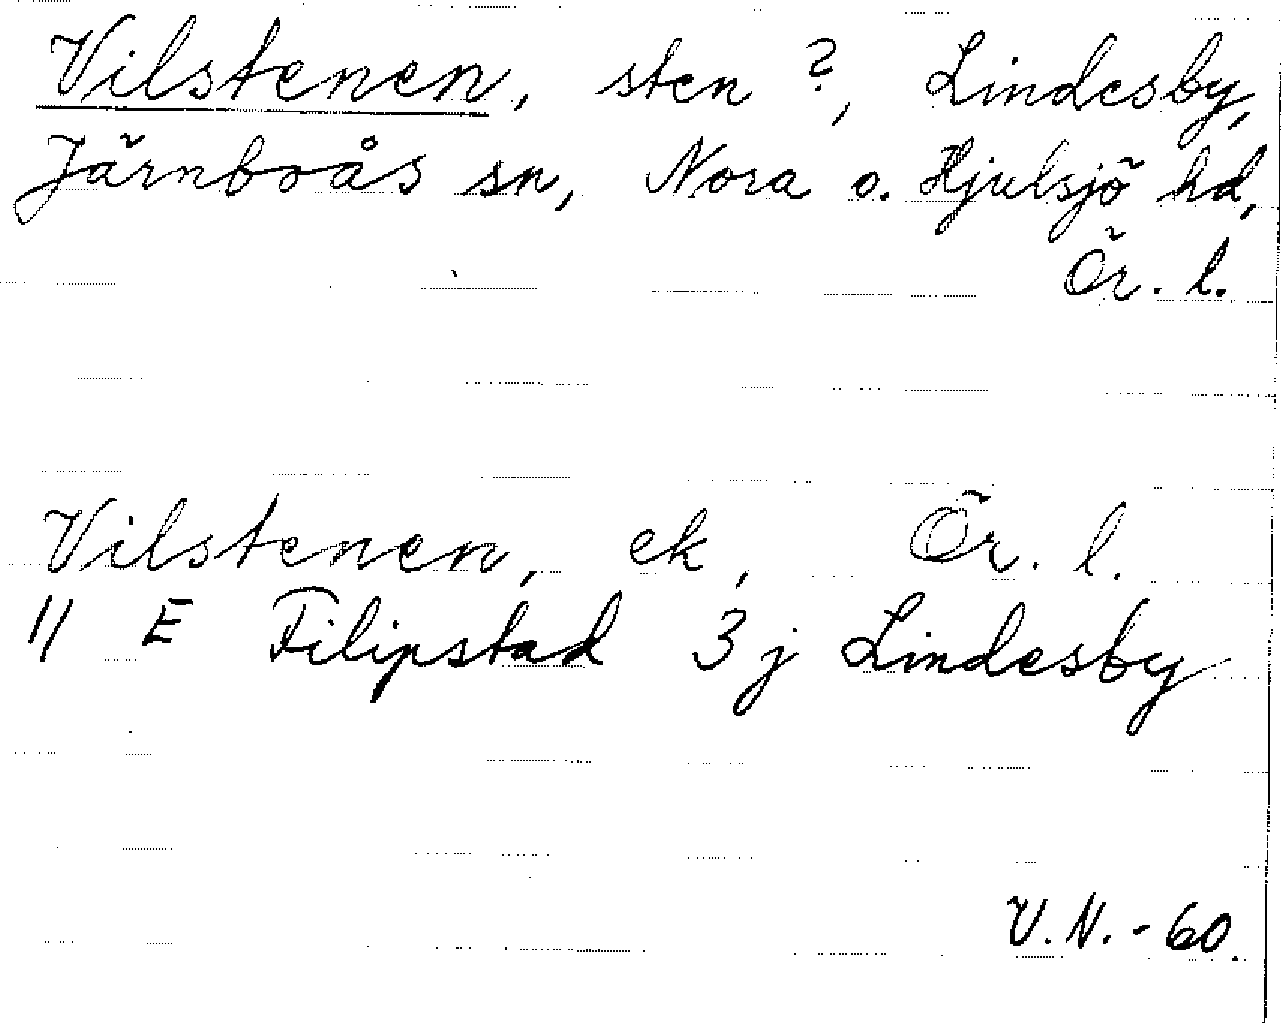 Vilstenen, sten ?, Lindesby,
Järnboås sn, Nora o. Hjulsjö hd,
Ör. l.
Vilstenen, ek, Ör. l.
11 E Filipstad 3 j Lindesby
V.N.-60.